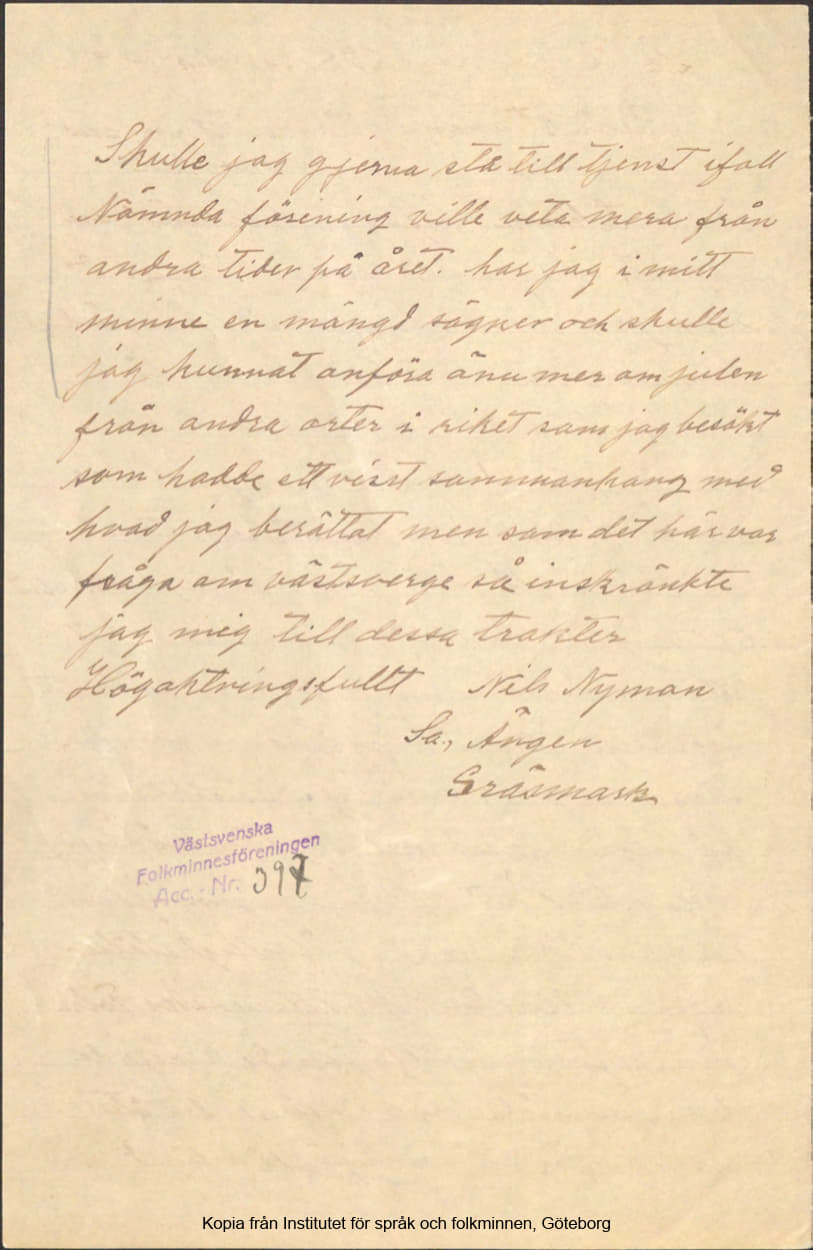 Skulle jag gjerna stå till tjenst ifall
Nämnda förening ville veta mera från
andra tider på året. har jag i mitt
minne en mängd sägner och skulle
jag kunnat anföra änu mer om julen
från andra orter i riket som jag besökt
som hadde ett visst sammanhang med
hvad jag berättat men som det här var
fråga om västsverge så inskränkte
jag mig till dessa trakter
Högaktningsfullt Nils Nyman
Sa., Ängen
Gräsmark
Västsvenska
Folkminnesföreningen
Acc.- Nr. 397
Kopia från Institutet för språk och folkminnen, Göteborg